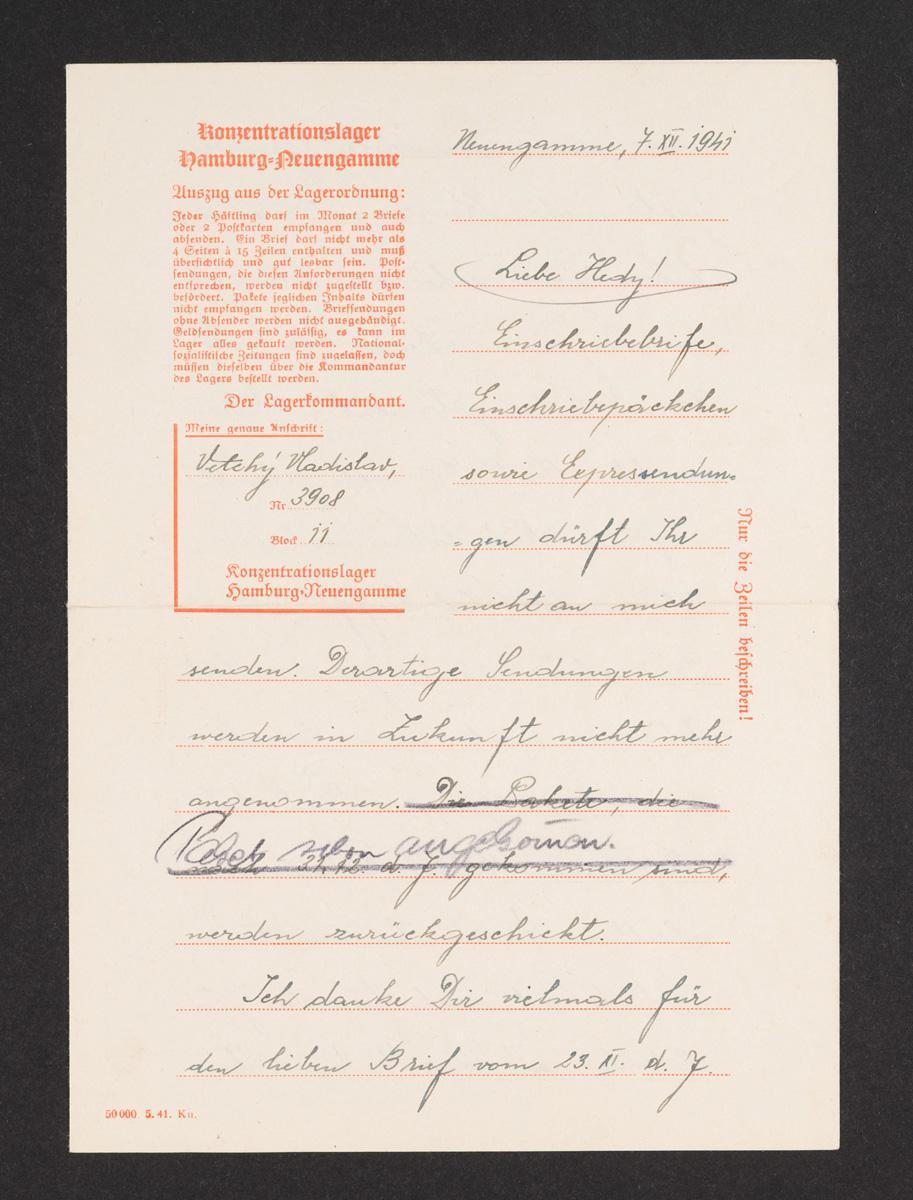 Konzentrationslager
Hamburg-Neuengamme
Auszug aus der Lagerordnung:
Jeder Häftling darf im Monat 2 Briefe
oder 2 Postkarten empfangen und auch
absenden. Ein Brief darf nicht mehr als
4 Seiten à 15 Zeilen enthalten und muß
übersichtlich und gut lesbar sein. Post-
sendungen, die diesen Anforderungen nicht
entsprechen, werden nicht zugestellt bzw.
befördert. Pakete jeglichen Inhalts dürfen
nicht empfangen werden. Briefsendungen
ohne Absender werden nicht ausgehändigt.
Geldsendungen sind zulässig, es kann im
Lager alles gekauft werden. National-
sozialistische Zeitungen sind zugelassen, doch
müssen dieselben über die Kommandantur
des Lagers bestellt werden.
Der Lagerkommandant.
Meine genaue Anschrift:
Vetchý Vladislav,
Nr. 3908
Block 11
Konzentrationslager
Hamburg-Neuengamme
Neuengamme, 7. XII. 1941
Liebe Hedy!
Einschriebebrife,
Einschriebepäckchen
sowie Expressendun=
=gen dürft Ihr
nicht an mich
senden. Derartige Sendungen
werden in Zukunft nicht mehr
angenommen. Die Pakete, die
Paket schon angekom̄en.
nach 31.12. d. J. gekommen sind,
werden zurückgeschickt.
Ich danke Dir vielmals für
den lieben Brief vom 23. XI. d. J.
Nur die Zeilen beschreiben!
50000. 5. 41. Ku.